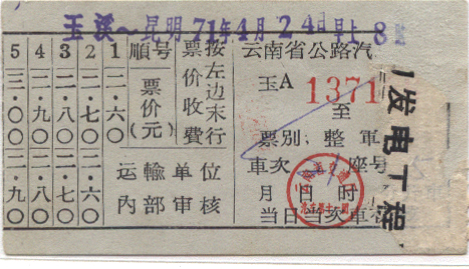 玉溪~昆明 71年4月24日早上8
5 4 3 2 1 順號
三·〇〇 二·九〇 二·八〇 二·七〇 二·六〇 票价(元)
二·九〇 二·八〇 二·七〇 二·六〇
按左边末行
票价收費
运輸单位
内部审核
云南省公路汽
玉A 1371
至
票別：整 軍
車次 座号
月 日 时
当日当次車
发电工程